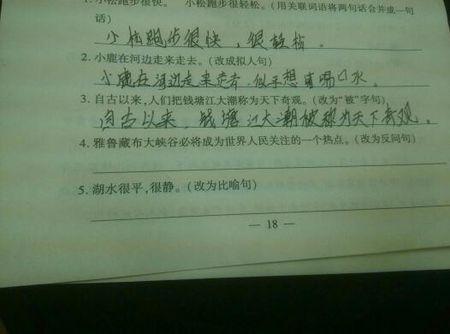 1. 小松跑步很快。 小松跑步很轻松。(用关联词语将两句话合并成一句
话)
小松跑步很快,很轻松。
2. 小鹿在河边走来走去。(改成拟人句)
小鹿在河边走来走去,似乎想要喝口水。
3. 自古以来,人们把钱塘江大潮称为天下奇观。(改为“被”字句)
自古以来,钱塘江大潮被称为天下奇观。
4. 雅鲁藏布大峡谷必将成为世界人民关注的一个热点。(改为反问句)
5. 湖水很平,很静。(改为比喻句)
— 18 —